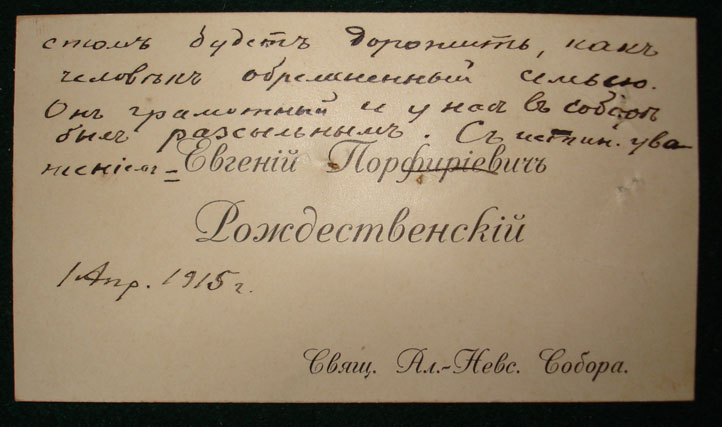 стомъ будетъ дорожить, какъ
человѣкъ обремененный семьею.
Онъ грамотный и у насъ въ соборѣ
былъ разсыльнымъ. Съ истин. ува-
женіемъ
Евгеній Порфиріевичъ
Рождественскій
1 Апр. 1915 г.
Свящ. Ал.-Невс. Собора.